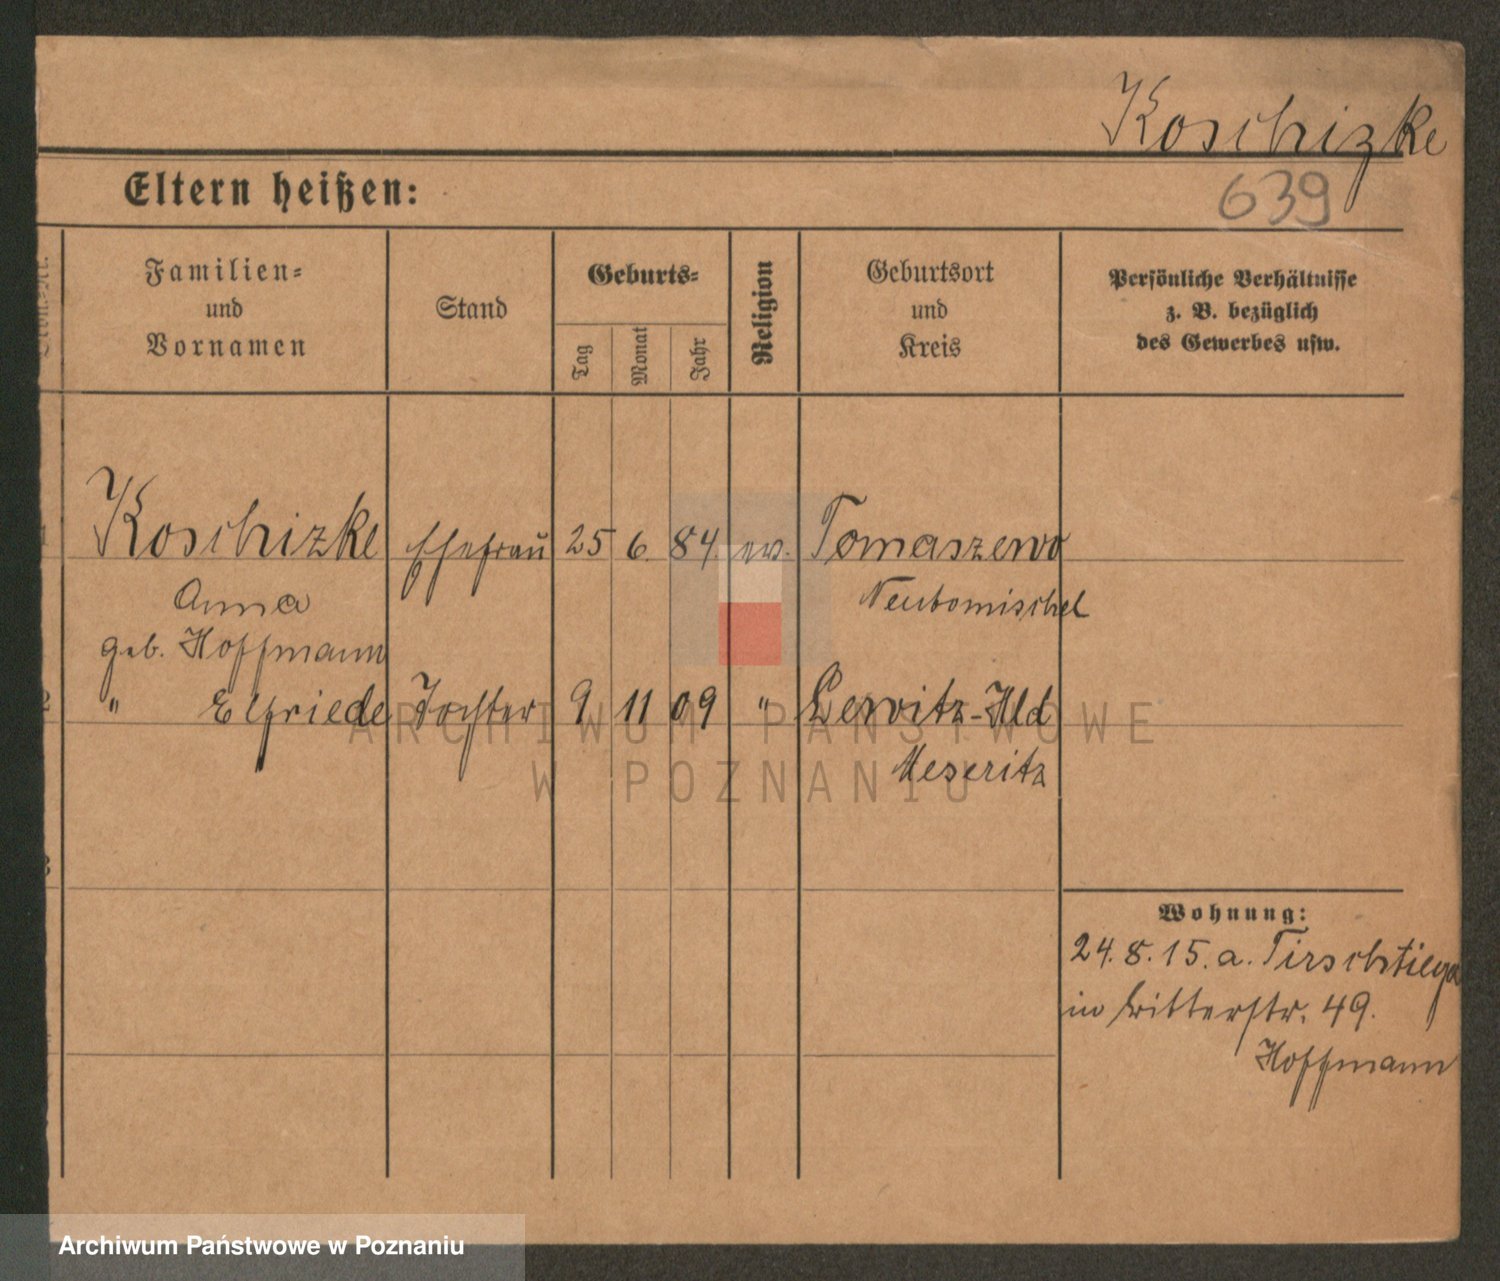 Koschizke
Eltern heißen:
639
Familien-
und
Vornamen
Stand
Geburts-
Tag
Monat
Jahr
Religion
Geburtsort
und
Kreis
Persönliche Verhältnisse
z. B. bezüglich
des Gewerbes usw.
1 Koschizke Ehefrau 25 6. 84. ev. Tomaszewo
Anna Neutomischel
geb. Hoffmann
2 " Elfriede Tochter 9 11 09 " Lewitz-Hld
Meseritz
3
Wohnung:
24. 8. 15. a. Tirschtiegel
in Ritterstr. 49.
Hoffmann
ARCHIWUM PAŃSTWOWE
W POZNANIU
Archiwum Państwowe w Poznaniu